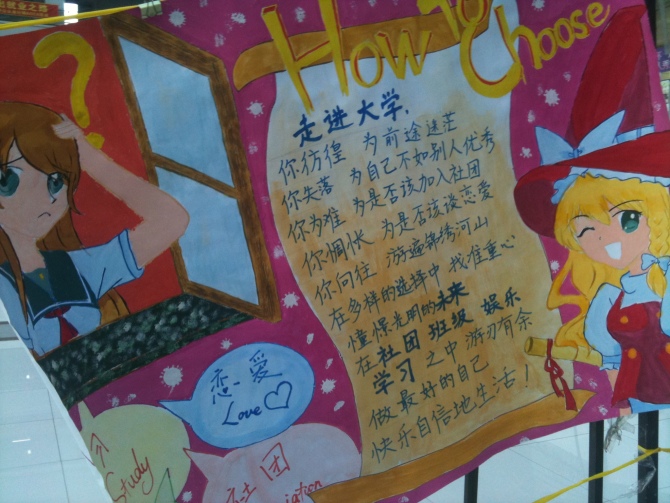 How to Choose
走进大学，
你彷徨 为前途迷茫
你失落 为自己不如别人优秀
你为难 为是否该加入社团
你惆怅 为是否该谈恋爱
你向往 游遍锦绣河山
在多样的选择中 找准重心
憧憬光明的未来
在社团 班级 娱乐
学习 之中 游刃有余
做最好的自己
快乐自信地生活！
?
恋爱
Love
Study
社团